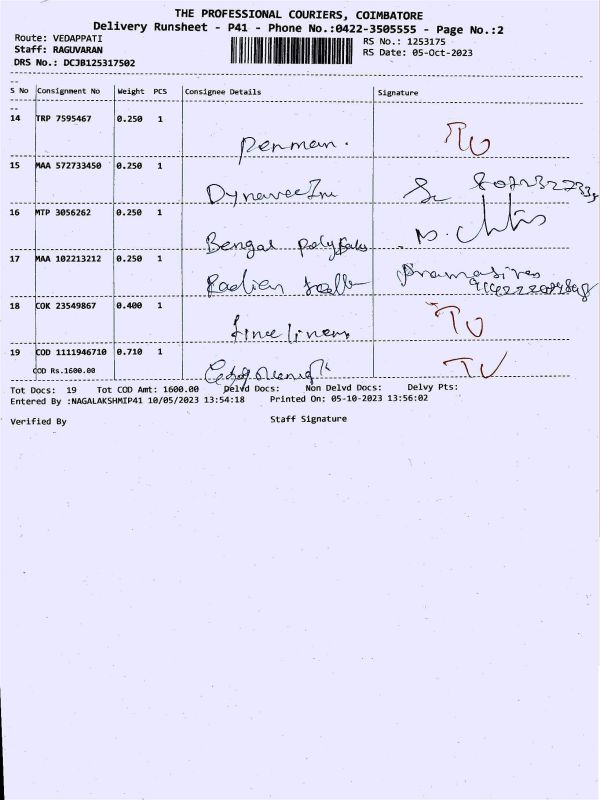 THE PROFESSIONAL COURIERS, COIMBATORE
Delivery Runsheet - P41 - Phone No.:0422-3505555 - Page No.:2
Route: VEDAPPATI
RS No.: 1253175
Staff: RAGUVARAN
RS Date: 05-Oct-2023
DRS No.: DCJB125317502
S No Consignment No Weight PCS Consignee Details Signature
14 TRP 7595467 0.250 1
Penman. TU
15 MAA 572733450 0.250 1
16 MTP 3056262 0.250 1
Bengal
17 MAA 102213212 0.250 1
18 COK 23549867 0.400 1
fine linens TU
19 COD 1111946710 0.710 1
COD Rs.1600.00 TU
Tot Docs: 19 Tot COD Amt: 1600.00 Delvd Docs: Non Delvd Docs: Delvy Pts:
Entered By :NAGALAKSHMIP41 10/05/2023 13:54:18 Printed On: 05-10-2023 13:56:02
Verified By Staff Signature